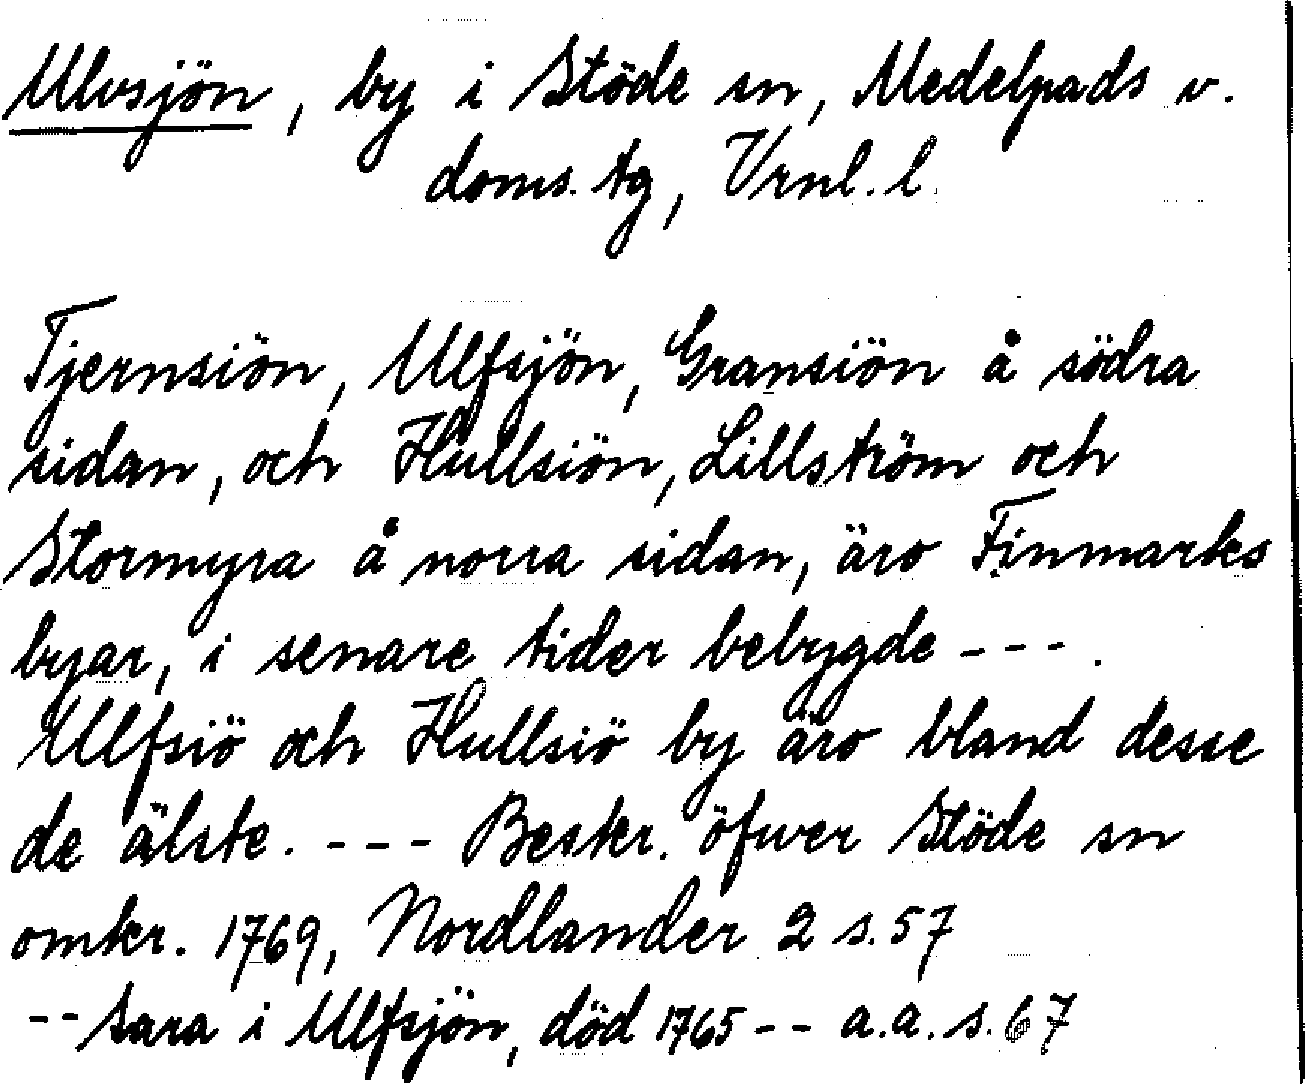 Ulvsjön, by i Stöde sn, Medelpads v.
doms. tg, Vrnl. l.
Tjernsiön, Ulfsjön, Gransiön å södra
sidan, och Hullsiön, Lillström och
Stormyra å norra sidan, äro Finmarks
byar, i senare tider bebygde ---.
Ulfsiö och Hullsiö by äro bland desse
de älste. --- Beskr. öfwer Stöde sn
omkr. 1769, Nordlander 2 s. 57
-- Sara i Ulfsjön, död 1765 -- a.a. s. 67